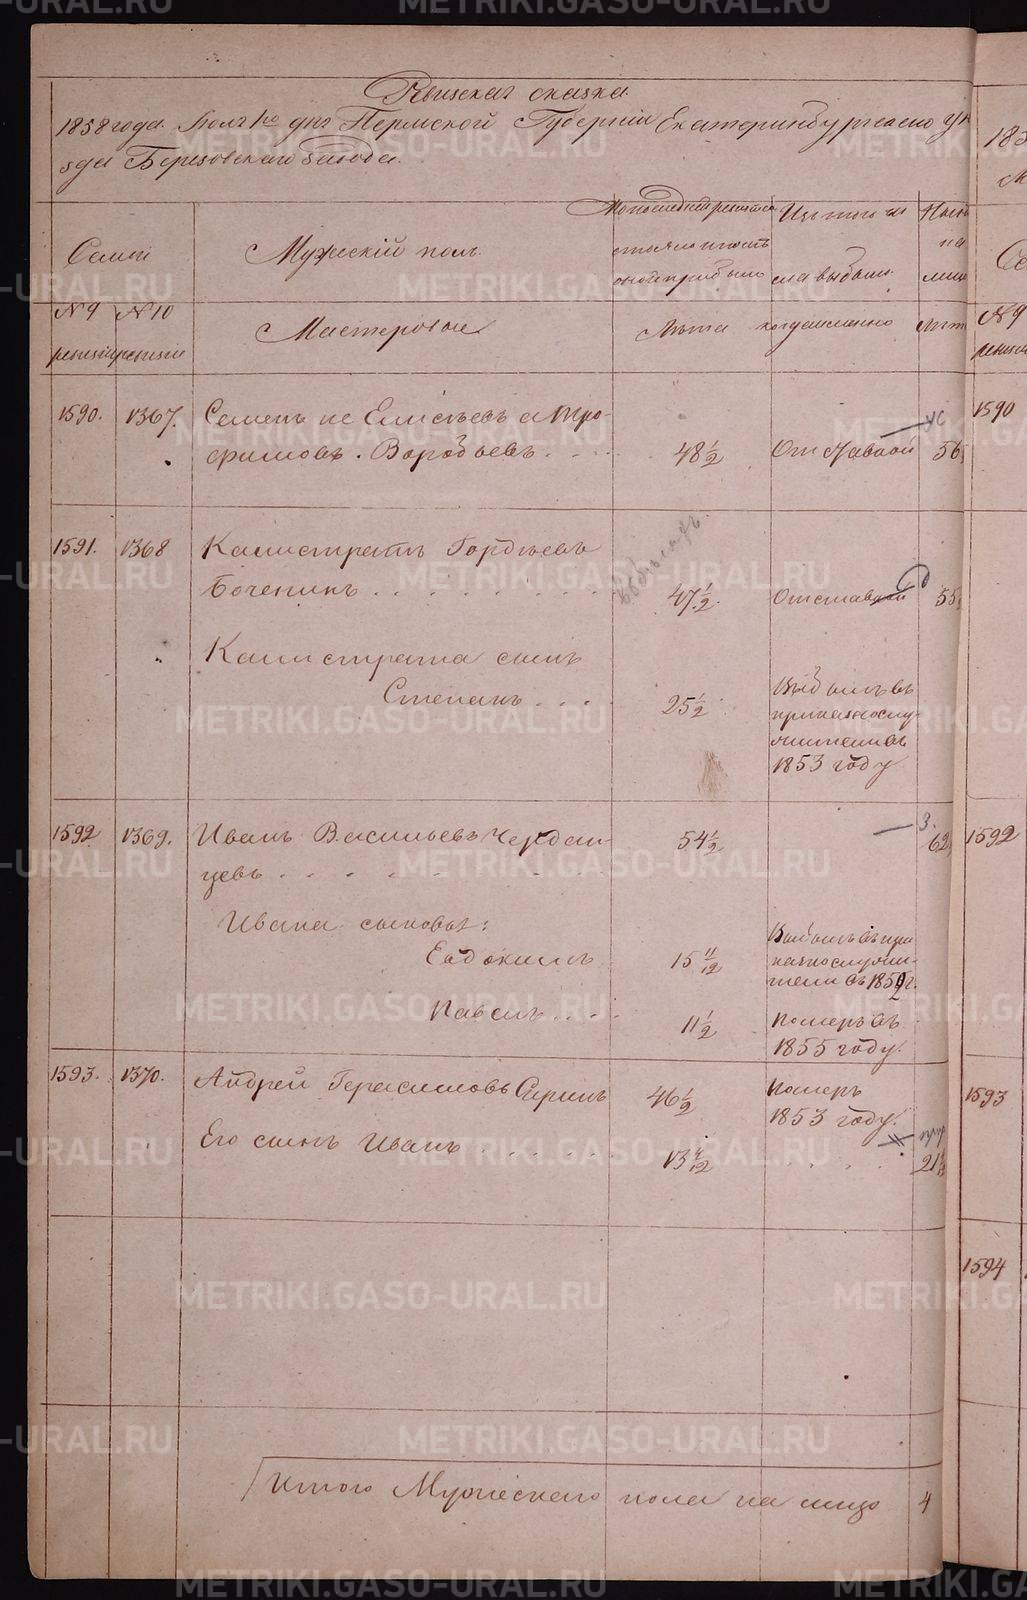 Ревизская сказка
1858 года Июля 1го дня Пермской Губернии Екатеринбургскаго Уе
зда Березовскаго Завода.
Семьи
Мужеский пол.
По последней ревизии
состояло и после
оной прибыло
Из того чи
сла выбыло
Ныне
на
лицо
№ 9
ревизии
№ 10
ревизии
Мастеровые
Лета
когда именно
Лета
1590. 1367. Семен не Елисеев а Тро-
фимов. Воробьев . . . . 48 1/2 Отставной 56
1591. 1368 Калистрат Гордеев
Боченин . . . . . . . . 47 1/2 Отставной 55
Калистрата сын
Степан . . . . 25 1/2
Выбыл в
приказнослу-
жители в
1853 году
1592 1369. Иван Васильев Чердан- 54 1/2 3. 62
цев . . . . . . . .
Ивана сыновья:
Евдоким 15 11/12
Выбыл в при
казнослужи-
тели в 1852 г.
Павел . . . . 11 1/2
Помер в
1855 году.
1593. 1370. Андрей Герасимов Сирин 46 1/2
Помер
1853 году.
Его сын Иван . . . . . . 13 4/12 21
Итого Мужескаго пола на лицо 4
185
1590
1592
1593
1594
№ 9
METRIKI.GASO-URAL.RU